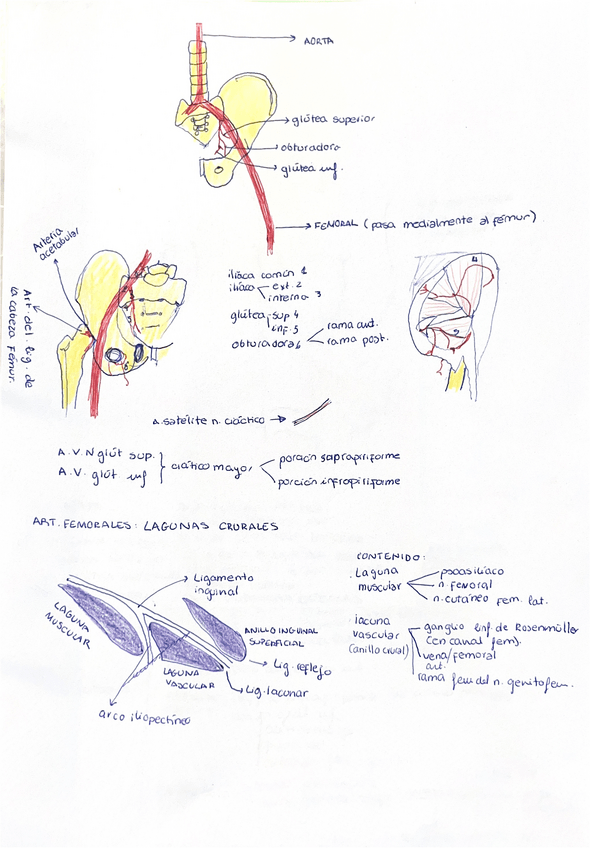 AORTA
glútea superior
obturadora
glútea inf.
FEMORAL (pasa medialmente al fémur)
Arteria
acetabular
Art del lig. de
la cabeza Fémur.
ilíaca común 1
ilíaca ext. 2
interna 3
glútea sup 4
inf. 5
obturadora 6 rama ant.
rama post.
a. satélite n. ciáctico
A.V. N glút sup.
A.V. glút inf
ciático mayor
porción saprapiriforme
porción infrapiriforme
ART. FEMORALES: LAGUNAS CRURALES
Ligamento
inguinal
LAGUNA
MUSCULAR
ANILLO INGUINAL
SUPERFICIAL
LAGUNA
VASCULAR
Lig. reflejo
Lig. lacunar
arco iliopectíneo
CONTENIDO:
. Laguna
muscular
psoasilíaco
n. femoral
n. cutáneo fem. lat.
. lacuna
vascular
(anillo crural)
ganglio inf. de Rosenmüller
(en canal fem).
vena/femoral
art.
rama fem del n. genitofem.